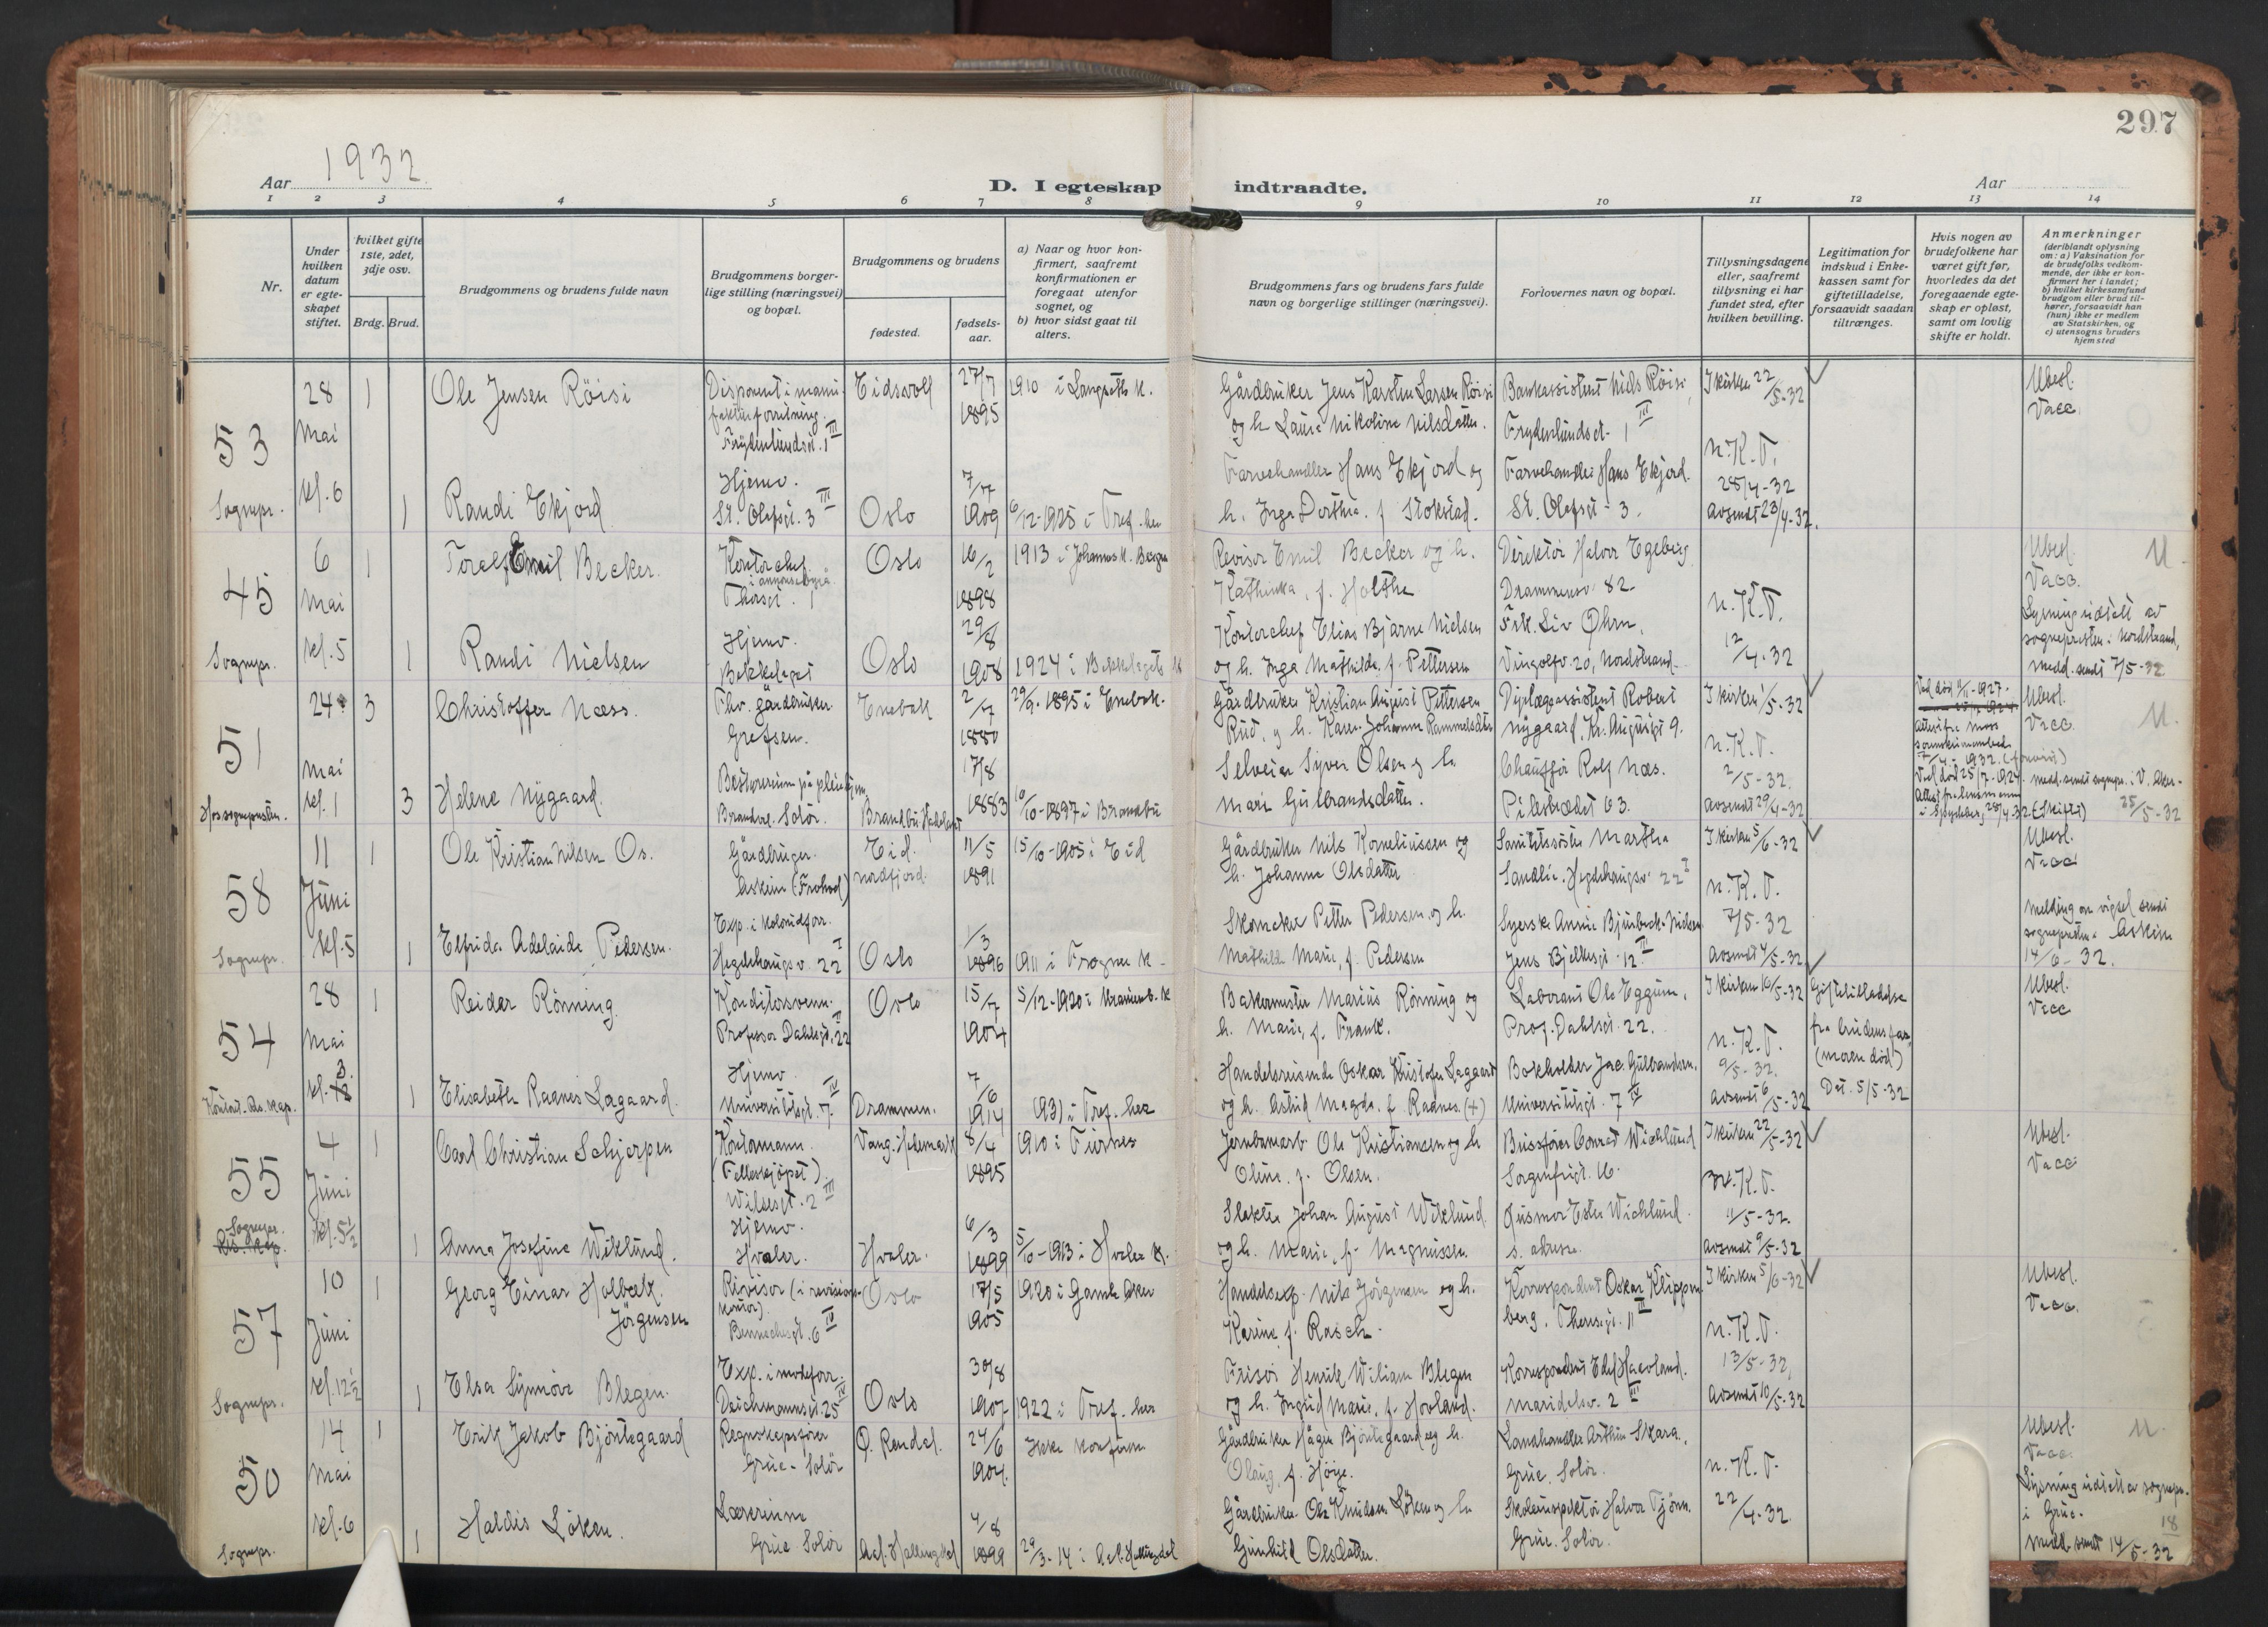 297
Aar 1932
D. I egteskap indtraadte.
Aar
1 2 3 4 5 6 7 8 9 10 11 12 13 14
Nr.
Under hvilken datum er egteskapet stiftet.
hvilket gifte 1ste, 2det, 3dje osv.
Brdg. Brud.
Brudgommens og brudens fulde navn
Brudgommens borgerlige stilling (næringsvei) og bopæl.
Brudgommens og brudens
fødested.
fødselsaar.
a) Naar og hvor konfirmert, saafremt konfirmationen er foregaat utenfor sognet, og
b) hvor sidst gaat til alters.
Brudgommens fars og brudens fars fulde navn og borgerlige stillinger (næringsvei).
Forlovernes navn og bopæl.
Tillysningsdagene eller, saafremt tillysning ei har fundet sted, efter hvilken bevilling.
Legitimation for indskud i Enkekassen samt for giftetilladelse, forsaavidt saadan tiltrænges.
Hvis nogen av brudefolkene har været gift før, hvorledes da det foregaaende egteskap er opløst, samt om lovlig skifte er holdt.
Anmerkninger
(deriblandt oplysning om: a) Vaksination for de brudefolks vedkommende, der ikke er konfirmert her i landet; b) hvilket kirkesamfund brudgom eller brud tilhører, forsaavidt han (hun) ikke er medlem av Statskirken, og c) utensogns bruders hjemsted
53 Sognepr.
28 Mai kl. 6
1 Ole Jensen Röisi
Disponent i manufakturforretning. Frydenlundsgt. 1 III
Eidsvoll 27/7 1895
1910 i Langseth k.
Gårdbruker Jens Karsten Larsen Röisi og h. Laura Nikoline Nilsdatter.
Bankassistent Niels Röisi, Frydenlundsgt. 1 III
I kirken 22/5-32
Ubesl. Vacc.
1 Randi Ekjord
Hjemv. St. Olafsgt. 3 III
Oslo 7/7 1909
6/12-1925 i Tref. her
Farvehandler Hans Ekjord og h. Inga Dorthea f. Stokstad.
Farvehandler Hans Ekjord. St. Olafsgt. 3.
n.K.T. 28/4-32 Avsendt 23/4-32.
45 Sognepr.
6 Mai kl. 5
1 Toralf Emil Becker.
Kontorchef i annonsebyrå Thorsgt. 1
Oslo 16/2 1898
1913 i Johannes k. Bergen
Revisor Emil Becker og h. Kathinka, f. Holthe
Direktör Halvor Egeberg Drammensv. 82.
n.K.T. 12/4-32
Ubesl. Vacc. U.
1 Randi Nielsen
Hjemv. Bekkelaget
Oslo 29/8 1908
1924 i Bekkelagets k
Kontorchef Elias Bjarne Nielsen og h. Inga Mathilde, f. Pettersen
Frk. Liv Öhrn, Vingolfv. 20, Nordstrand.
Lysning utstedt av sognepresten i Nordstrand, medd. sendt 7/5-32.
51 Hos sognepresten.
24 Mai kl. 1
3 Christoffer Næss.
Fhv. gårdbruker. Grefsen.
Enebak 2/7 1880
29/9-1895 i Enebak.
Gårdbruker Kristian August Pettersen Rud, og h. Karen Johanne Rammelsdtr
Nygaard, Kr. Augustsgt. 9.
I kirken 1/5-32
Ved död 11/11-1927.
Ubesl. Vacc. U.
3 Helene Nygaard.
Bestyrerinne på pleiehjem, Brandval. Solör.
Brandbu Hadeland 17/8 1883
10/10-1897 i Brandbu
Selveier Syver Olsen og h. Mari Gulbrandsdatter.
Chaufför Rolf Næs. Pilestrædet 63.
n.K.T. 2/5-32. Avsendt 29/4-32
Ved död 25/7-1924.
medd. sendt sognepr. i V. Aker. 25/5-32
58 Sognepr.
11 Juni kl. 5
1 Ole Kristian Nilsen Os.
Gårdbruger. Askim (Frohod)
Eid. Nordfjord. 11/5 1891
15/10-1905 i Eid
Gårdbruker Nils Korneliussen og h. Johanne Olsdatter
Sanitetssöster Martha Sandlie. Hegdehaugsv. 22 I
I kirken 5/6-32
Ubesl. Vacc.
1 Elfrida Adelaide Pedersen.
Exp. i kolonialforr. Hegdehaugsv. 22 I
Oslo 1/3 1896
1911 i Frogner k.
Skomaker Petter Pedersen og h. Mathilde Marie, f. Pedersen
Syerske Annie Bjürbeck-Nielsen Jens Bjelkesgt. 12 III
n.K.T. 7/5-32 Avsendt 4/5-32
Melding om vigsel sendt sognepresten i Askim 14/6-32.
54 Konst. Res. Kap.
28 Mai kl. 3
1 Reidar Rönning.
Konditorsvenn. Professor Dahlsgt. 22 III
Oslo 15/7 1904
5/12-1920 i Uranienb. k
Bakermester Marius Rönning og h. Marie, f. Frank.
Laborant Ole Eggum, Prof. Dahlsgt. 22.
I kirken 16/5-32
Giftetilladelse fra brudens far, (moren död) Dat. 5/5-32
Ubesl. Vacc
1 Elisabeth Raanes Lagaard.
Hjemv. Universitetsgt. 7 IV
Drammen. 7/6 1914
1931 i Tref. her
Handelsreisende Oskar Kristofer Lagaard og h. Astrid Magda f. Raanes (+)
Bokholder Jac. Gulbrandsen. Universitetsgt. 7 IV
n.K.T. 9/5-32. Avsendt 6/5-32
55 Sognepr. Res. Kap.
4 Juni kl. 5 1/2
1 Carl Christian Schjerpen
Kontormann. (Felleskjöpet) Wilsesgt. 2 III
Vang. Hedemark 8/4 1895
1910 i Furnes
Jernbanearb. Ole Kristiansen og h Oline, f. Olsen.
Bussförer Conrad Wichlund Sorgenfrigt. 16.
I kirken 22/5-32
Ubesl. Vacc.
1 Anna Josefine Wiklund.
Hjemv. Hvaler.
Hvaler. 6/3 1899
5/10-1913 i Hvaler k.
Slakter Johan August Wiklund og h. Marie, f. Magnussen.
Husmor Ester Wichlund. s. adresse.
n.K.T. 11/5-32. Avsendt 9/5-32
57 Sognepr.
10 Juni kl. 12 1/2
1 Georg Einar Holbæk Jörgensen
Revisor (i revisionskontor). Bennechesgt. 6 IV
Oslo 17/5 1905
1920 i Gamle Aker
Handelsexp. Nils Jörgensen og h. Karine f. Rasch.
Korrespondent Oskar Klippenberg, Theresegt. 11 III
I kirken 5/6-32
Ubesl. Vacc.
1 Elsa Synnöve Blegen.
Exp. i moteforr. Deichmannsgt. 25 IV
Oslo 30/8 1907
1922 i Tref. her
Frisör Henrik Wiliam Blegen og h. Ingrid Marie, f. Hovland.
Korrespondent Edel Haavland. Maridalsv. 2 III
n.K.T. 13/5-32, Avsendt 10/5-32
50 Sognepr.
14 Mai kl. 6
1 Erik Jakob Björntegaard
Regnskapsförer Grue-Solör
Ö. Rendal. 24/6 1904.
Ikke konfirm
Gårdbruker Hågen Björntegaard og h. Olaug, f. Höye.
Landhandler Arthur Skara, Grue. Solör.
n.K.T. 22/4-32.
Ubesl. Vacc. U.
1 Haldis Löken.
Lærerinne Grue Solör
Aal. Hallingdal 4/8 1899
29/3-14 i Aal. Hallingdal
Gårdbruker Ole Knudsen Löken og h Gunhild Olsdatter.
Skoleinspektör Halvor Tjönn. Grue. Solör.
Lysning utstedt av sognepr. i Grue.
18
Medd. sendt 14/5-32